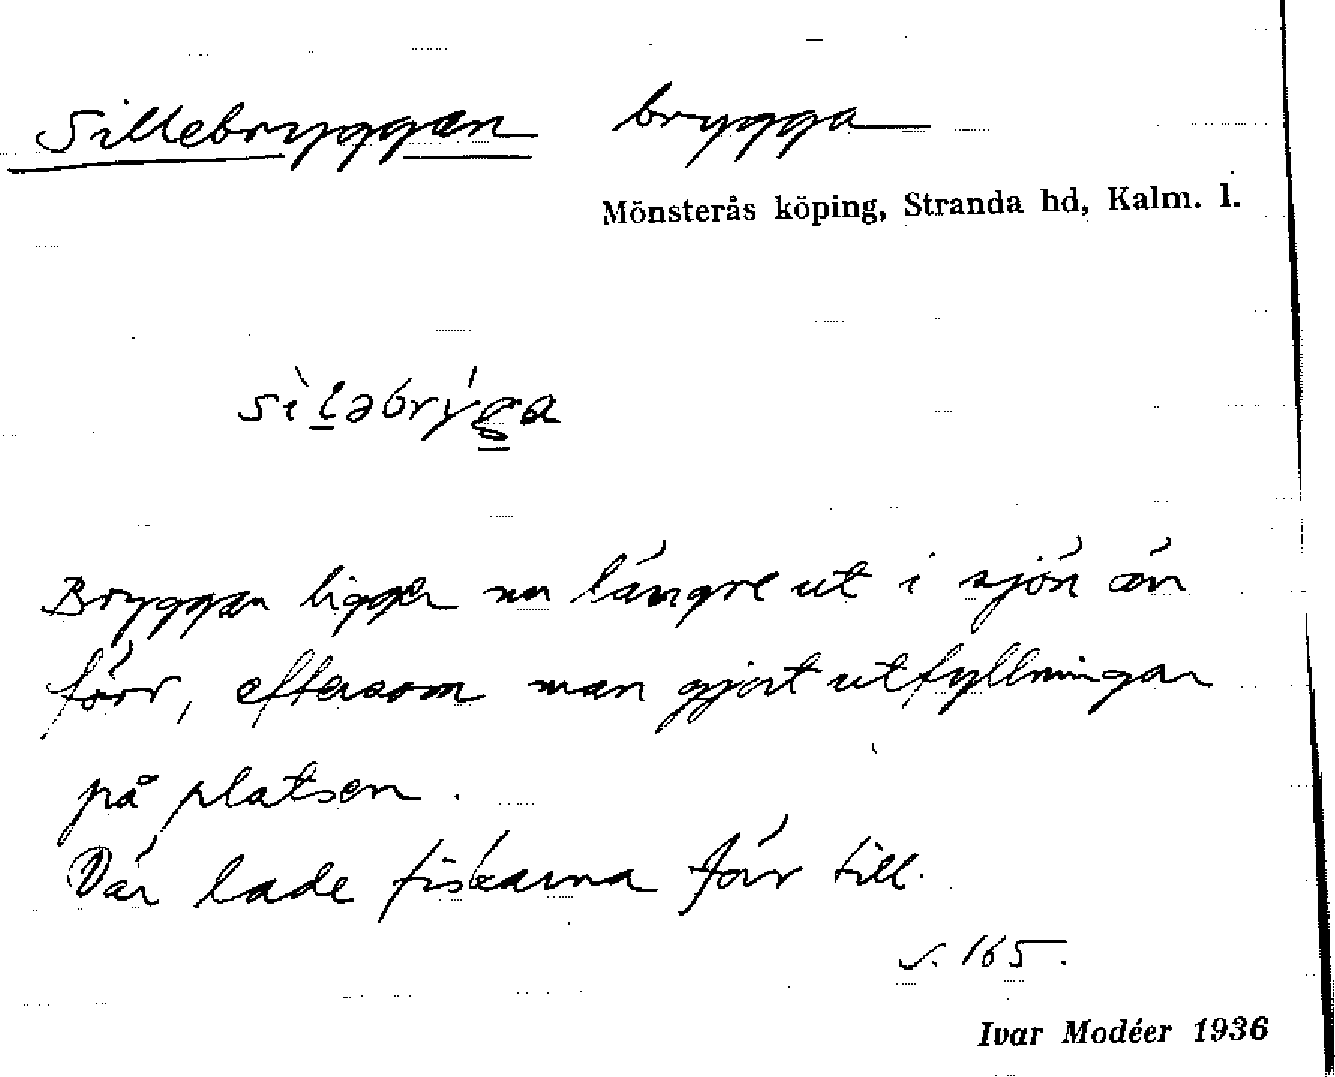 Sillebryggan brygga
Mönsterås köping, Stranda hd, Kalm. l.
sìḷəbrýg̱a
Bryggan ligger nu längre ut i sjön än
förr, eftersom man gjort utfyllningar
på platsen.
Där lade fiskarna förr till.
s. 165.
Ivar Modéer 1936